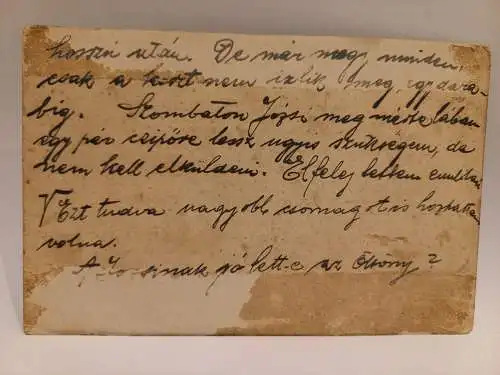 hosszú után. De már megy minden,
csak a keszt nem izlik meg, egy dara-
big. Szombaton Józsi meg mérte lában
egy pár csipőre lesz ugyis szükségem, da
nem kell elküldeni. Elfelejtettem emliteni
Ezt tudva nagyobb csomagot is hoztattam
volna.
A sinak jó lett-e az öltöny?